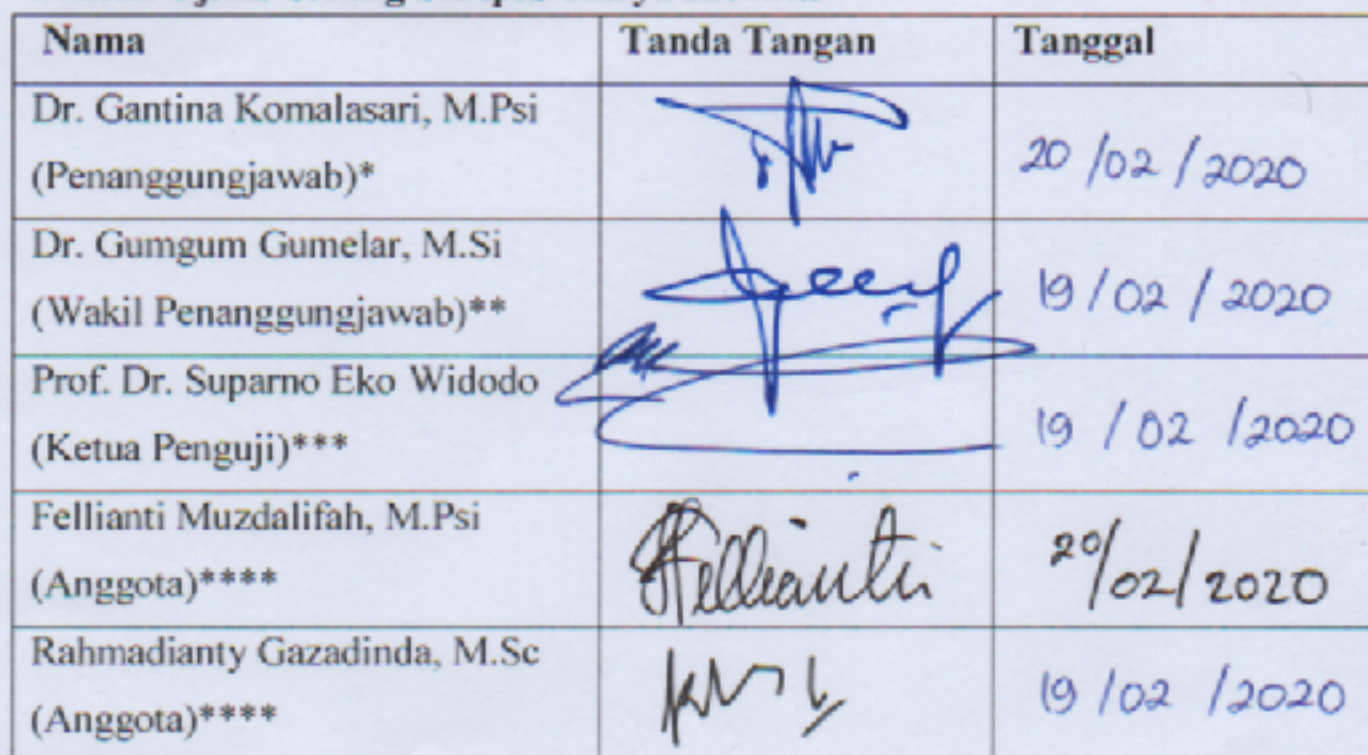 Nama Tanda Tangan Tanggal
Dr. Gantina Komalasari, M.Psi
(Penanggungjawab)* 20/02/2020
Dr. Gumgum Gumelar, M.Si
(Wakil Penanggungjawab)** 19/02/2020
Prof. Dr. Suparno Eko Widodo
(Ketua Penguji)*** 19/02/2020
Fellianti Muzdalifah, M.Psi
(Anggota)**** Fellianti 20/02/2020
Rahmadianty Gazadinda, M.Sc
(Anggota)**** 19/02/2020